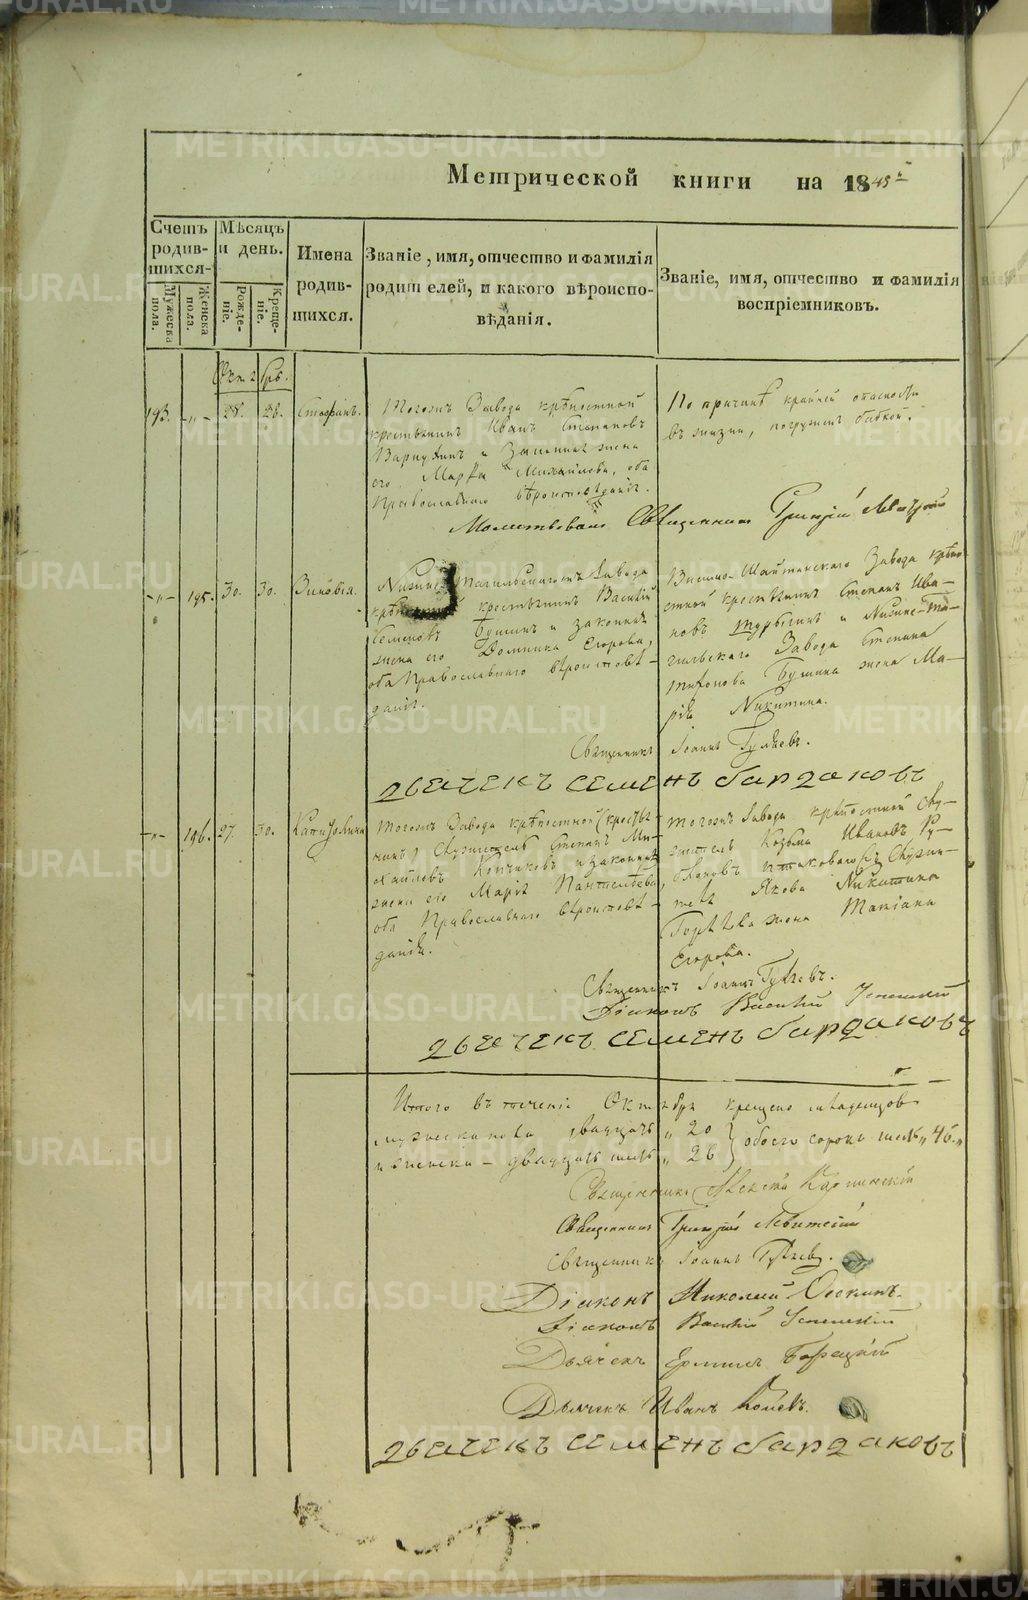 Метрической книги на 1845 г.
Счетъ родившихся.
Мѣсяцъ и день.
Имена родившихся.
Званіе, имя, отчество и фамилія родителей, и какого вѣроисповѣданія.
Званіе, имя, отчество и фамилія воспріемниковъ.
Мужеска пола.
Женска пола.
Рожденіе.
Крещеніе.
193. -"- 28. 28. Стефанъ.
Тогожъ Завода крѣпостной
крестьянинъ Иванъ Степановъ
и Законная жена
его Марѳа Михайлова, оба
Православнаго вѣроисповѣданія.
По причинѣ крайней опасности
въ жизни, погруженъ бабкой.
Молитвовалъ Священникъ Григорій Левитскій
-"- 195. 30. 30. Зиновія.
Нижне-Тагильскаго Завода
крестьянинъ Василій
Семеновъ Бушинъ и законная
жена его Домника Егорова,
оба Православнаго вѣроисповѣ-
данія.
Висимо-Шайтанскаго Завода крѣпо-
стной крестьянинъ Степанъ Ива-
новъ и Нижне-Та-
гильскаго Завода Степана
жена Ма-
рія Никитина.
Священникъ Іоаннъ Гуляевъ.
Дьячекъ Семенъ Бардаковъ
-"- 196. 27. 30. Капитолина
Тогожъ Завода крѣпостной (крестья-
нинъ) Служитель Степанъ Ми-
хайловъ и законная
жена его Марія Пантелѣева,
оба Православнаго вѣроисповѣ-
данія.
Тогожъ Завода крѣпостной Слу-
житель Козьма Ивановъ
Служи-
теля Якова Никитина
жена Татіана
Егорова.
Священникъ Іоаннъ Гуляевъ.
Діаконъ Василій Успенскій
Дьячекъ Семенъ Бардаковъ
Итого въ теченіи Октября крещено младенцовъ
мужеска пола двадцать " 20
и женска – двадцать шесть " 26 } обоего сорокъ шесть " 46. "
Священникъ Алексѣй Карпинскій
Священникъ Григорій Левитскій
Священникъ Іоаннъ Гуляевъ.
Діаконъ Николай Осокинъ.
Діаконъ Василій Успенскій
Дьячекъ
Дьячекъ Иванъ
Дьячекъ Семенъ Бардаковъ
METRIKI.GASO-URAL.RU